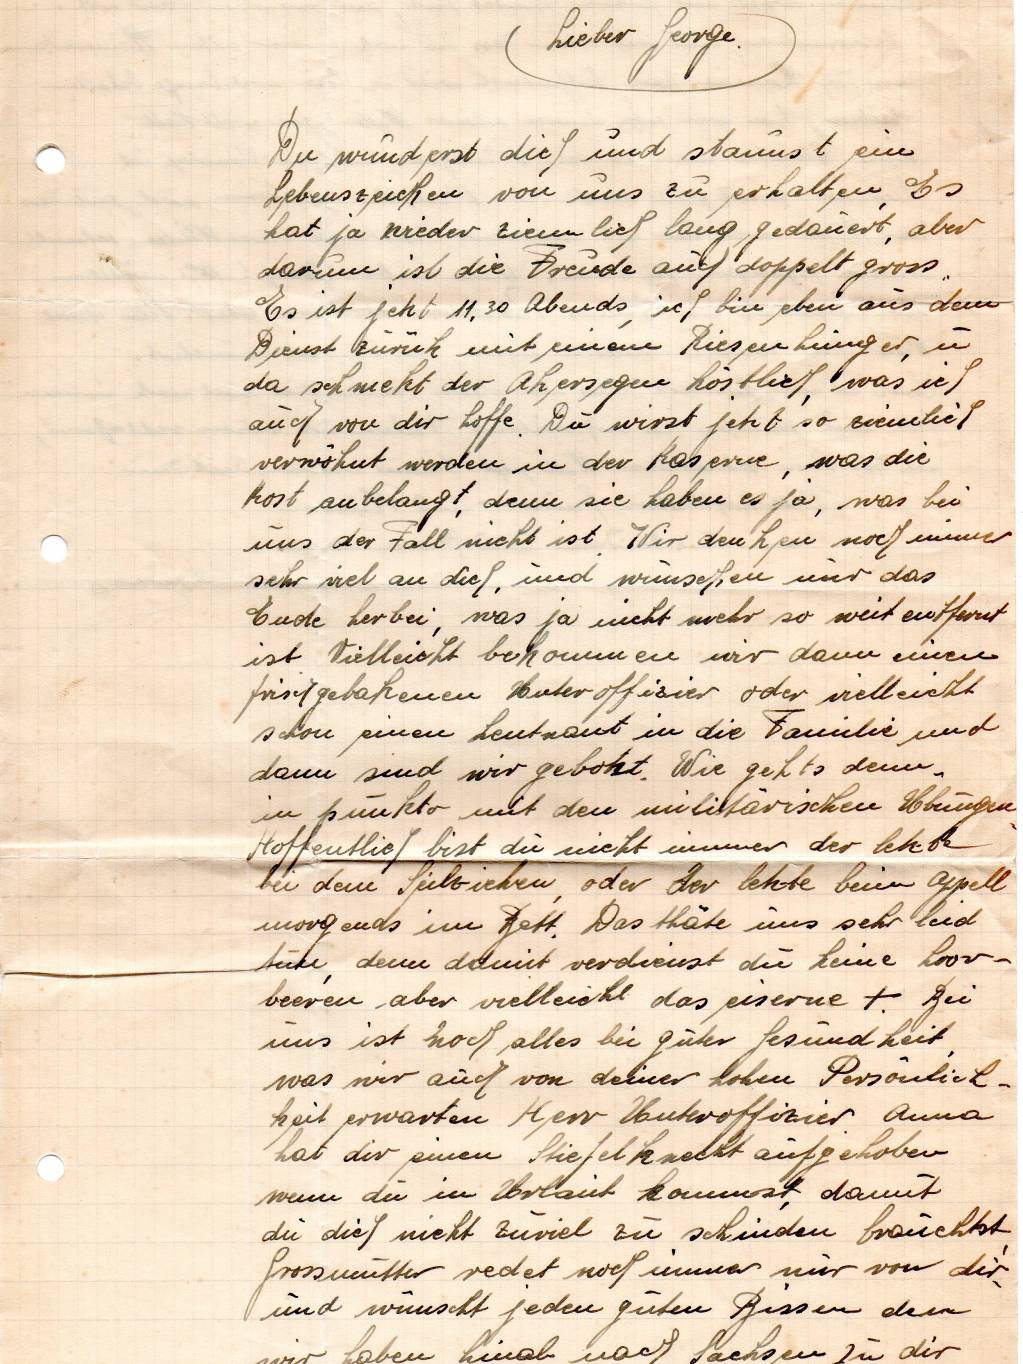 Lieber George.
Du wunderst dich und staunst ein
Lebenszeichen von uns zu erhalten. Es
hat ja wieder ziemlich lang gedauert, aber
darum ist die Freude auch doppelt gross.
Es ist jetzt 11.30 Abends, ich bin eben aus dem
Dienst zurük mit einem Riesenhunger, u
da schmekt der Akersegen köstlich, was ich
auch von dir hoffe. Du wirst jetzt so ziemlich
verwöhnt werden in der Kaserne, was die
Kost anbelangt, denn sie haben es ja, was bei
uns der Fall nicht ist. Wir denken noch immer
sehr viel an dich, und wünschen nur das
Ende herbei, was ja nicht mehr so weit entfernt
ist Vielleicht bekommen wir dann einen
frischgebakenen Unteroffizier oder vielleicht
schon einen Leutnant in die Familie und
dann sind wir gebokt. Wie gehts denn
in punkto mit den militärischen Übungen
Hoffentlich bist du nicht immer der letzte
bei dem oder der letzte beim Appell
morgends im Bett. Das thäte uns sehr leid
tun, denn damit verdienst du keine Loor-
beeren aber vielleicht das eiserne +. Bei
uns ist noch alles bei guter Gesundheit,
was wir auch von deiner hohen Persönlich-
keit erwarten Herr Unteroffizier. Anna
hat dir einen Stiefelknecht aufgehoben
wenn du in Urlaub kommst, damit
du dich nicht zuviel zu schinden brauchtst,
Grossmutter redet noch immer nur von dir
und wünscht jeden guten Bissen den
wir haben hinab nach Sachsen zu dir